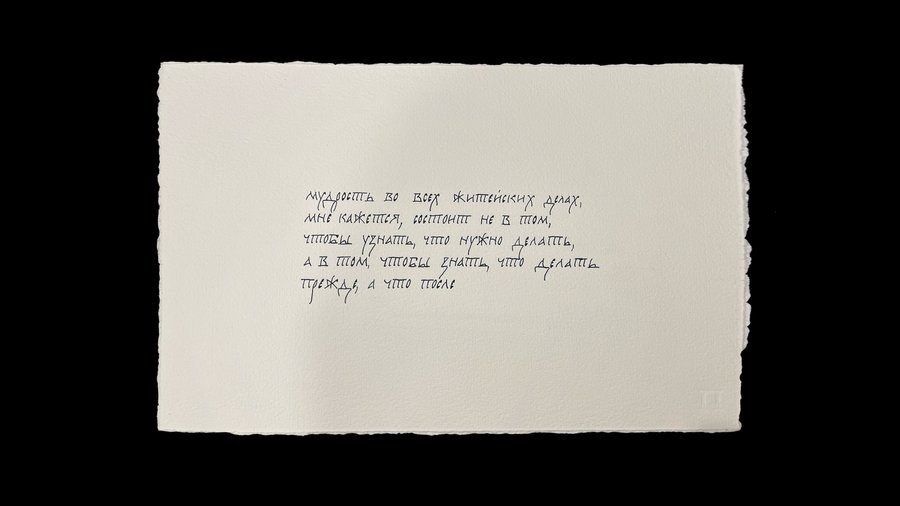 мудрость во всех житейских делах,
мне кажется, состоит не в том,
чтобы узнать, что нужно делать,
а в том, чтобы знать, что делать
прежде, а что после